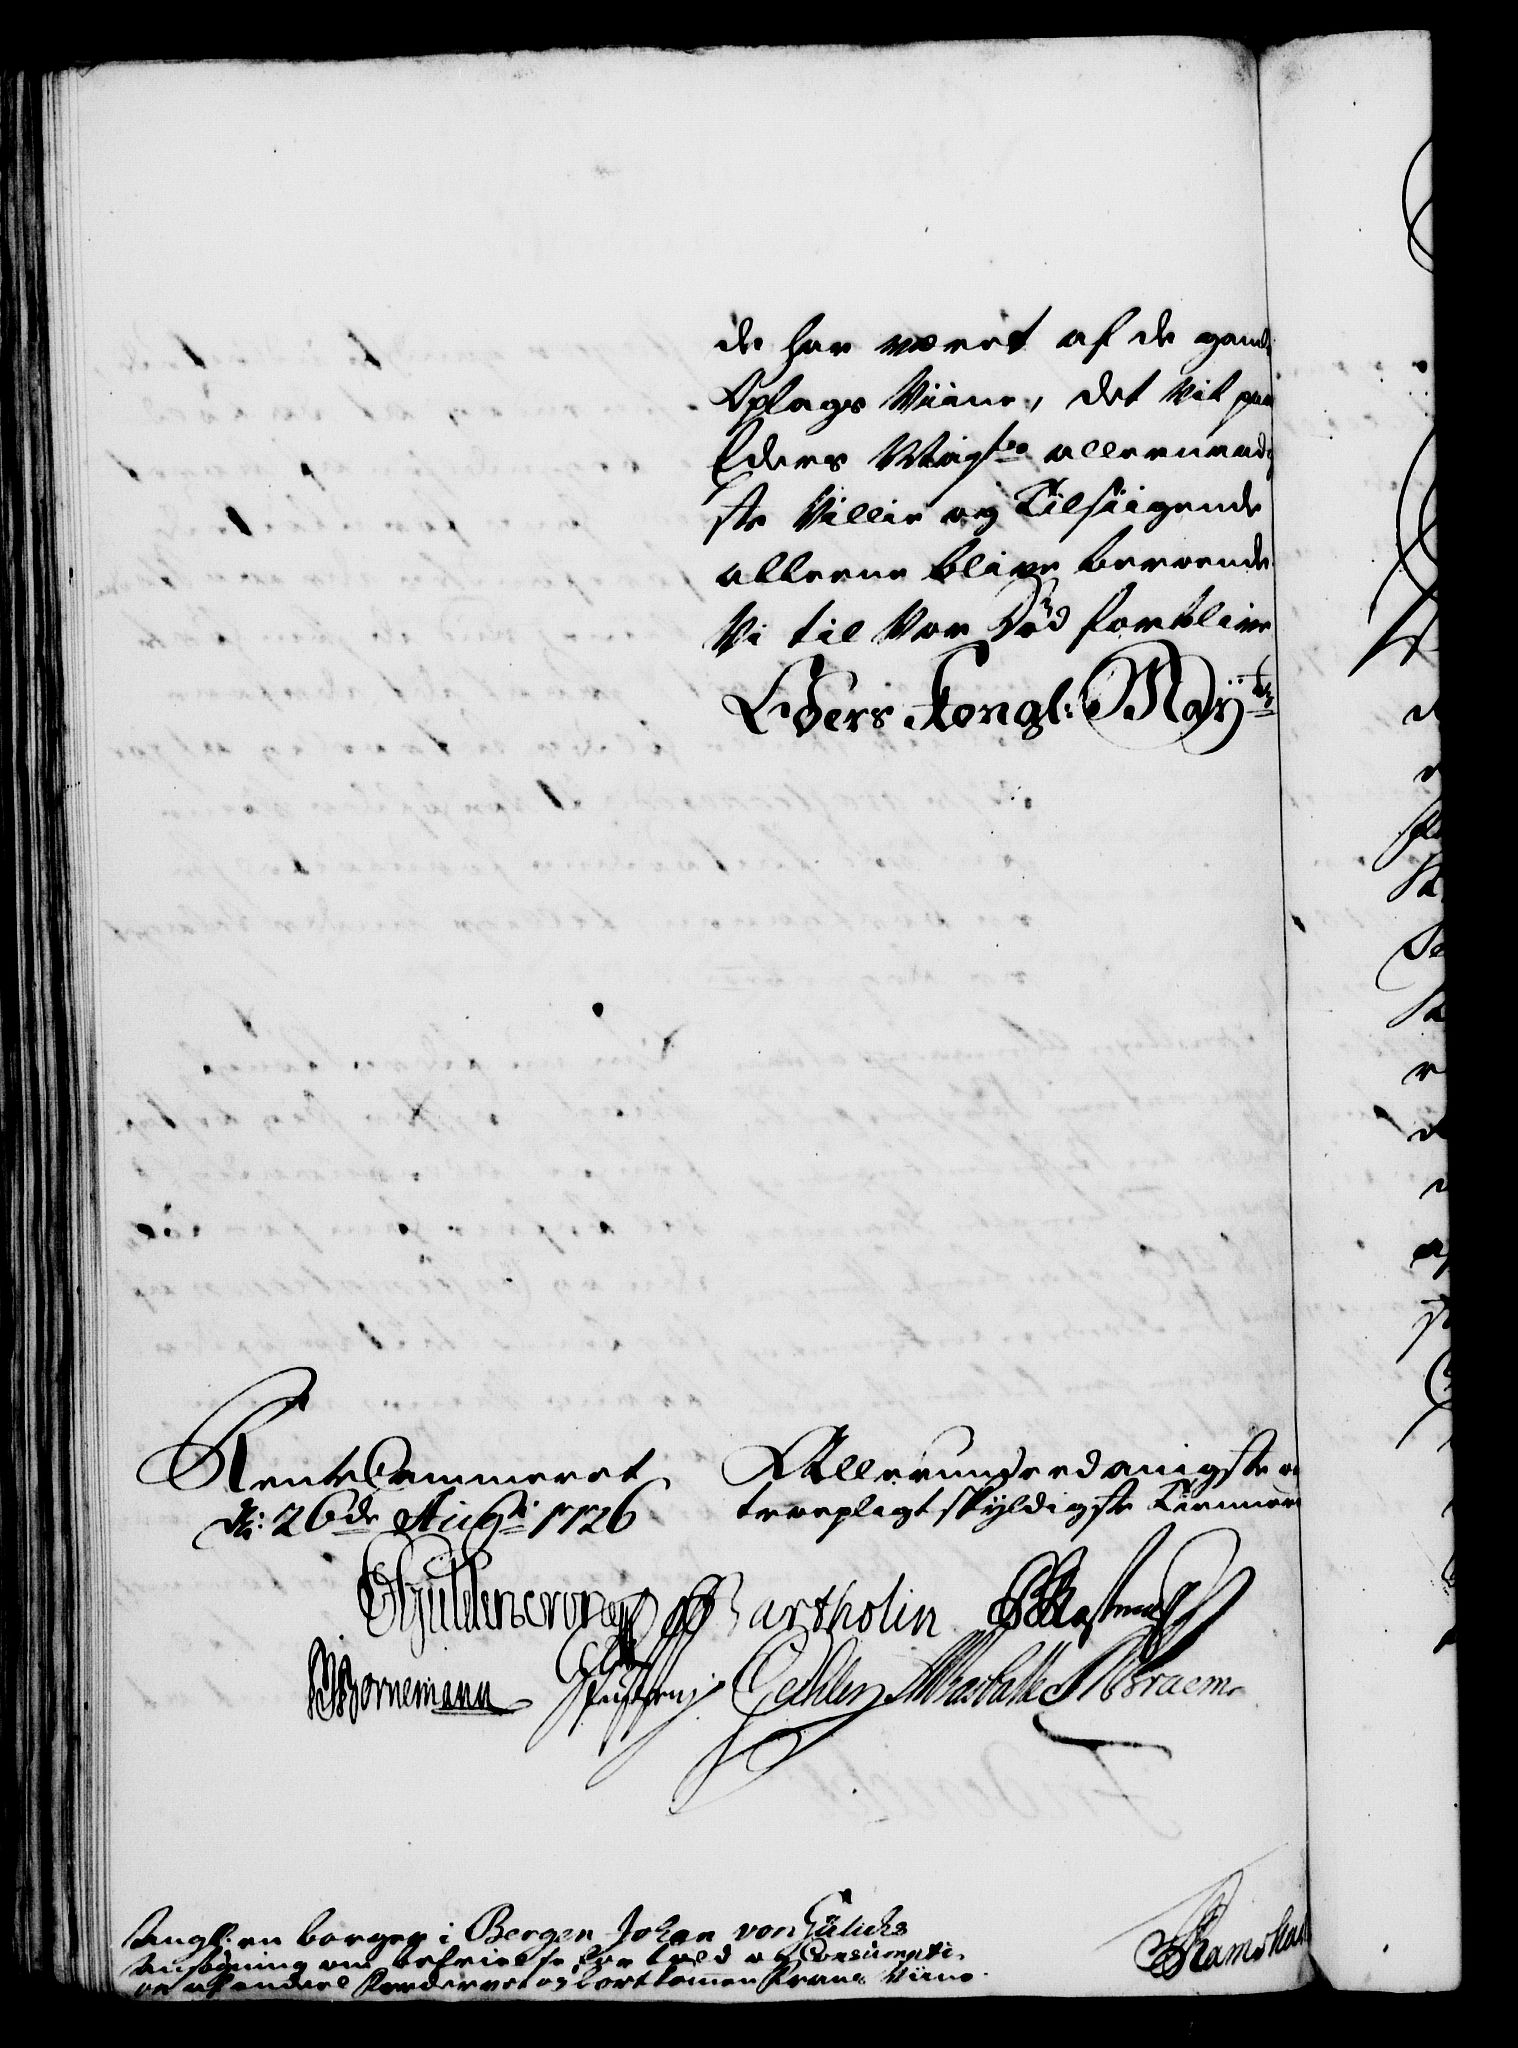 de har været af de gamle
Oplags Viine, det vil paa
Eders Mayts allernaadig
ste Villie og Tilsiigende
alleene blive beroende
Vi til Vor Død forblive
Eders Kongl: Mayts
RenteCammeret
dn: 26de Augti 1726
Allerunderdanigste og
troepligtskyldigste Tienere
Güldencrone Bartholin
Bornemann Oehlen Abraem
Angl: en borger i Bergen Johan von Gülichs
Ansøgning om befrielse for told og Consumpti-
on af endeel fordervet og bortkomen Franс Viine.